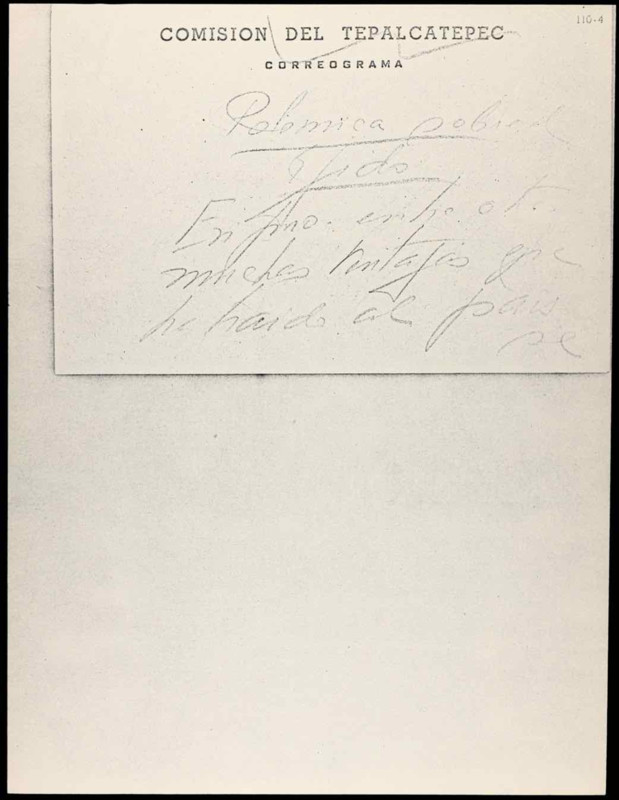 110-4
COMISION DEL TEPALCATEPEC
CORREOGRAMA
Polemica sobre el
Ejido
En fin. entre ot
muchas ventajas que
ha traido al pais
se